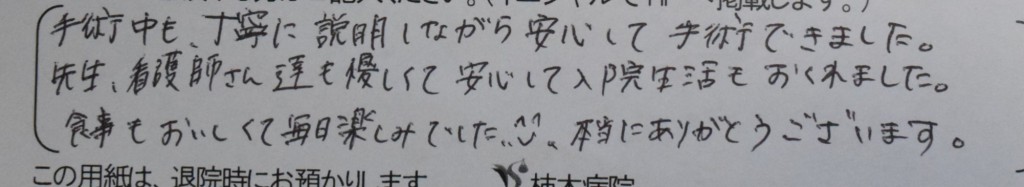 手術中も、丁寧に説明しながら安心して手術できました。
先生、看護師さん達も優しくて安心して入院生活もおくれました。
食事もおいしくて毎日楽しみでした..^^、本当にありがとうございます。
この用紙は、退院時にお預かりします